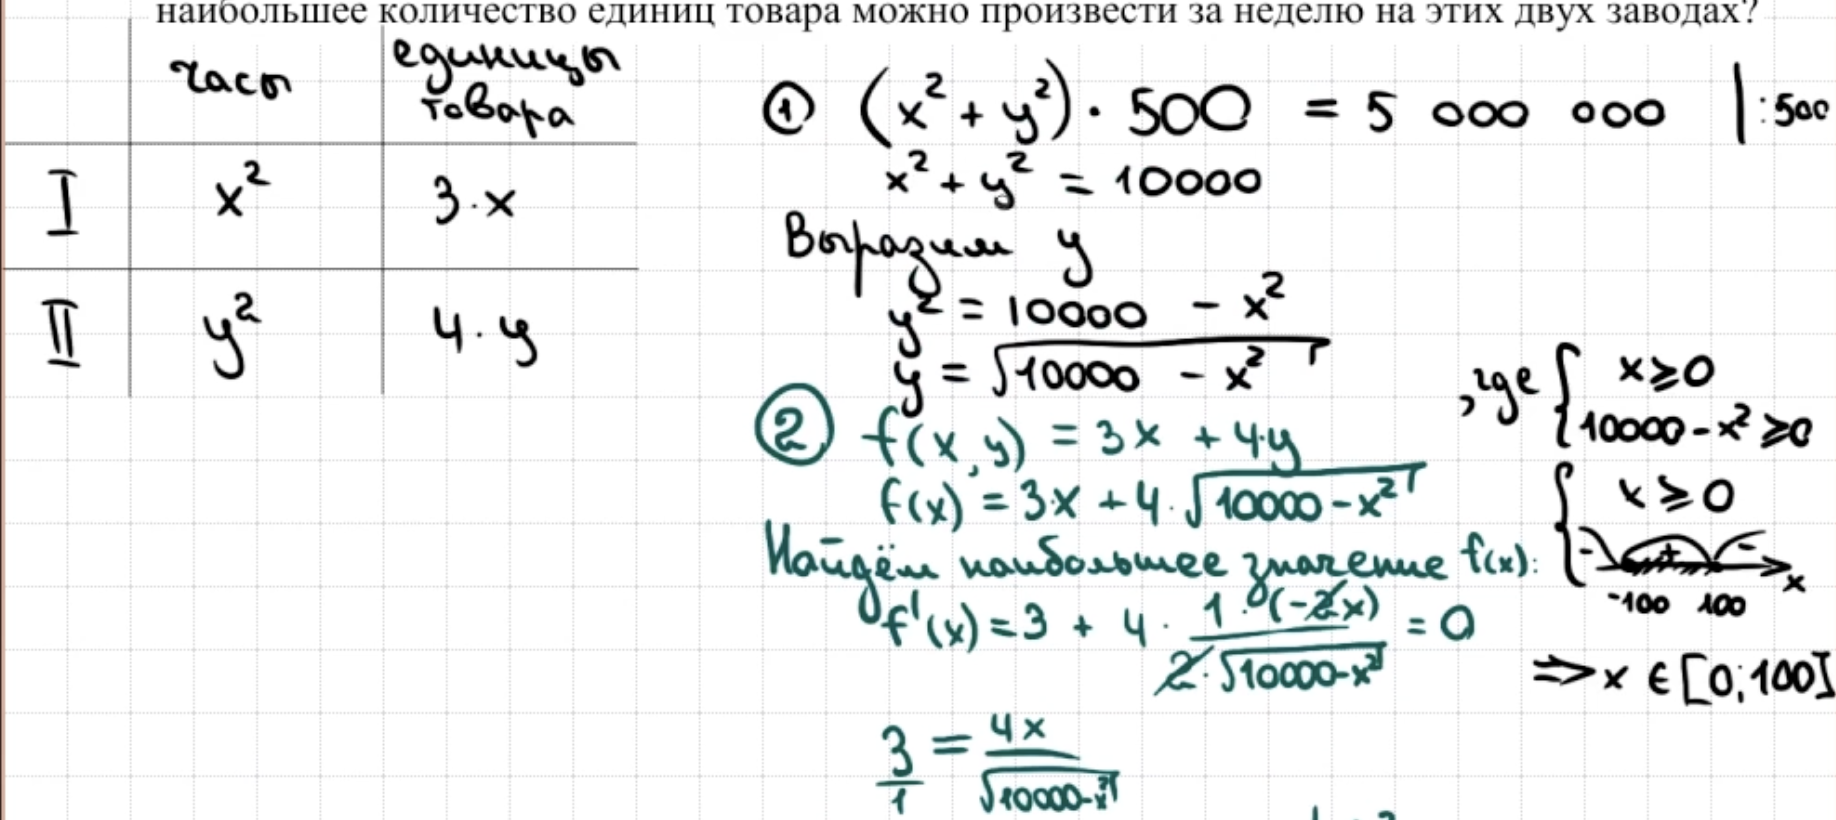 наибольшее количество единиц товара можно произвести за неделю на этих двух заводах?
часы единицы товара
I x² 3·x
II y² 4·y
① (x² + y²) · 500 = 5 000 000 | :500
x² + y² = 10000
Выразим y
y² = 10000 - x²
y = √(10000 - x²) , где { x ≥ 0
10000 - x² ≥ 0
② f(x, y) = 3x + 4·y
f(x) = 3·x + 4·√(10000 - x²)
{ x ≥ 0
- + - x
-100 100
=> x ∈ [0; 100]
Найдём наибольшее значение f(x):
f'(x) = 3 + 4 · 1·(-2x) / 2·√(10000-x²) = 0
3/1 = 4x / √(10000-x²)